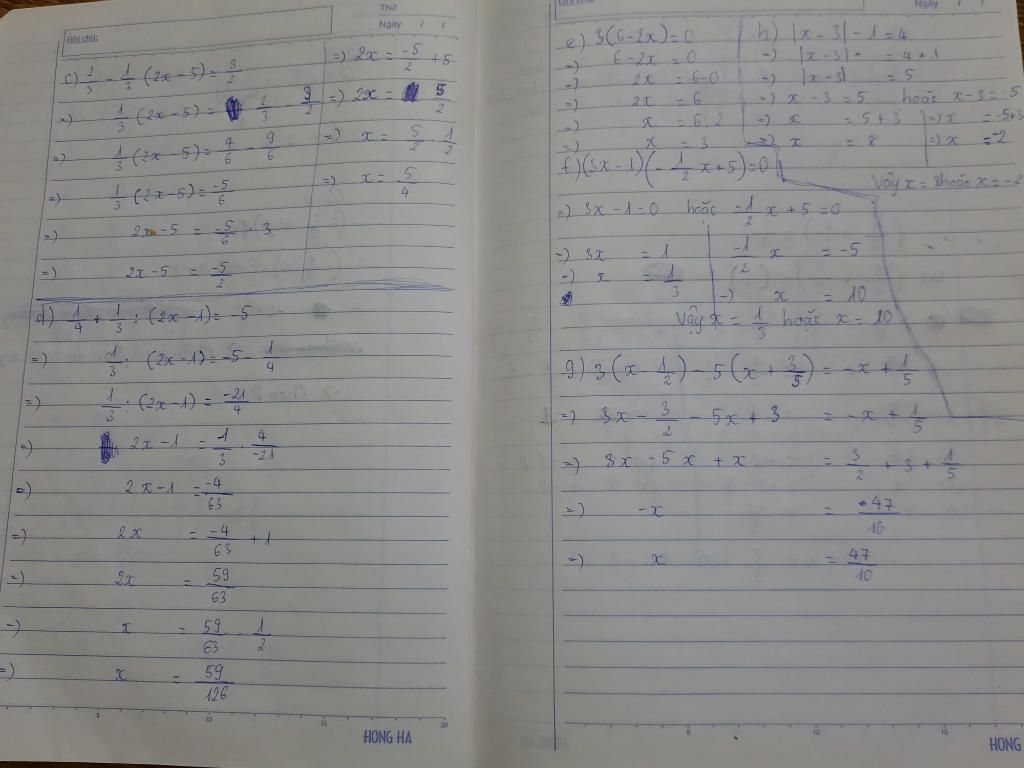 Ghi chú:
Thứ
Ngày
c) 2/3 - 1/3 (2x-5) = 3/2
=) 1/3 (2x-5) = 2/3 - 3/2
=) 1/3 (2x-5) = 4/6 - 9/6
=) 1/3 (2x-5) = -5/6
=) 2x-5 = -5/6 . 3
=) 2x-5 = -5/2
=) 2x = -5/2 + 5
=) 2x = 5/2
=) x = 5/2 . 1/2
=) x = 5/4
d) 1/4 + 1/3 : (2x-1) = -5
=) 1/3 : (2x-1) = -5 - 1/4
=) 1/3 : (2x-1) = -21/4
=) 2x-1 = 1/3 . 4/-21
=) 2x-1 = -4/63
=) 2x = -4/63 + 1
=) 2x = 59/63
=) x = 59/63 . 1/2
=) x = 59/126
HONG HA
Ghi chú:
Ngày
e) 3(6-2x) = 0
=) 6-2x = 0
=) 2x = 6-0
=) 2x = 6
=) x = 6:2
=) x = 3
h) |x-3| - 1 = 4
=) |x-3| = 4+1
=) |x-3| = 5
=) x-3 = 5 hoặc x-3 = -5
=) x = 5+3 =) x = -5+3
=) x = 8 =) x = -2
Vậy x = 8 hoặc x = -2
f) (3x-1)(-1/2 x+5) = 0
=) 3x-1=0 hoặc -1/2 x + 5 = 0
=) 3x = 1 -1/2 x = -5
=) x = 1/3 =) x = 10
Vậy x = 1/3 hoặc x = 10
g) 3(x - 1/2) - 5(x + 3/5) = -x + 1/5
=) 3x - 3/2 - 5x + 3 = -x + 1/5
=) 3x - 5x + x = 3/2 + 3 + 1/5
=) -x = 47/10
=) x = 47/10
HONG